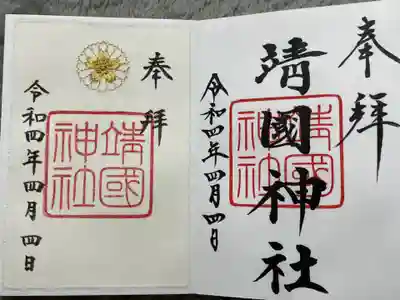 奉拝
靖國神社
靖國神社
令和四年四月四日
奉拝
靖國神社
令和四年四月四日